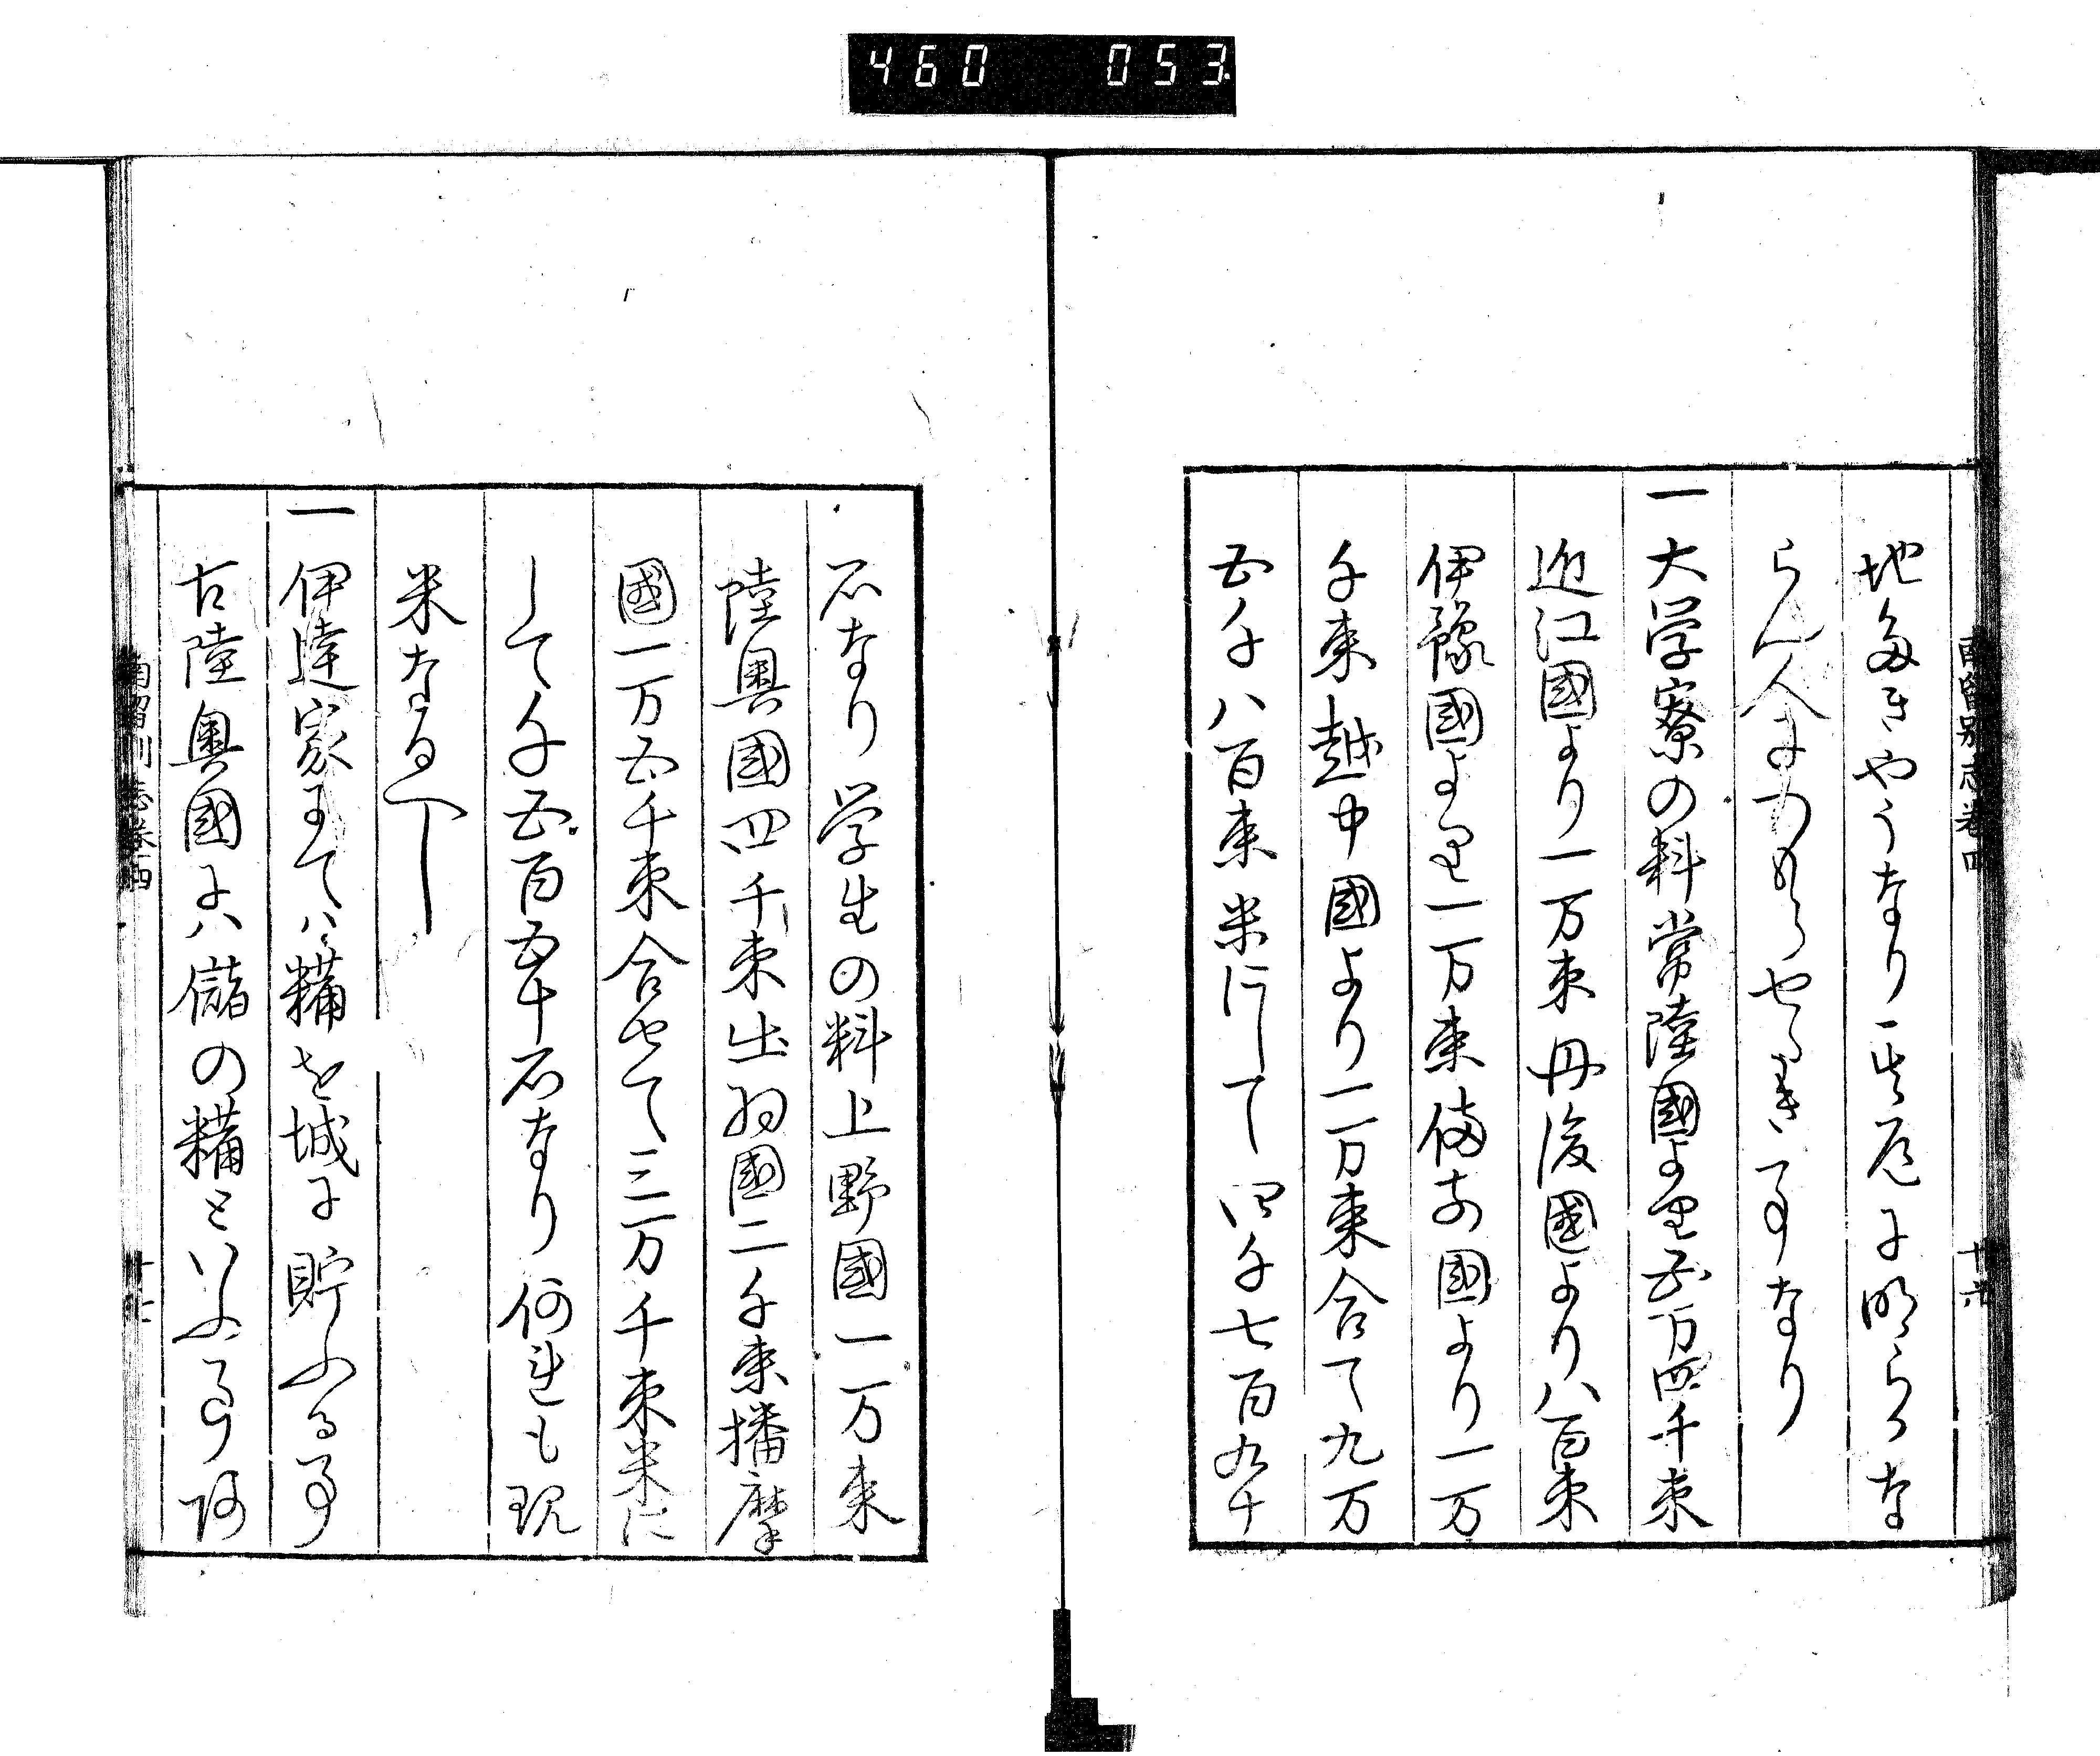 460 053
地多きやうなり其尺に明らかな
らん人にたつぬへき事なり
一大学寮の料常陸國より五万四千束
近江國より一万束丹後國より八百束
伊豫國より一万束備前國より一万
千束越中國より一万束合て九万
五千八百束米にして四千七百九十
石なり学生の料上野國一万束
陸奥國四千束出羽國二千束播摩
國一万五千束合せて三万千束米に
して千五百五十石なり何連も現
米なるへし
一伊達家にてハ糒を城に貯ふる事
古陸奥國にハ儲の糒といふ事
南留別志巻四